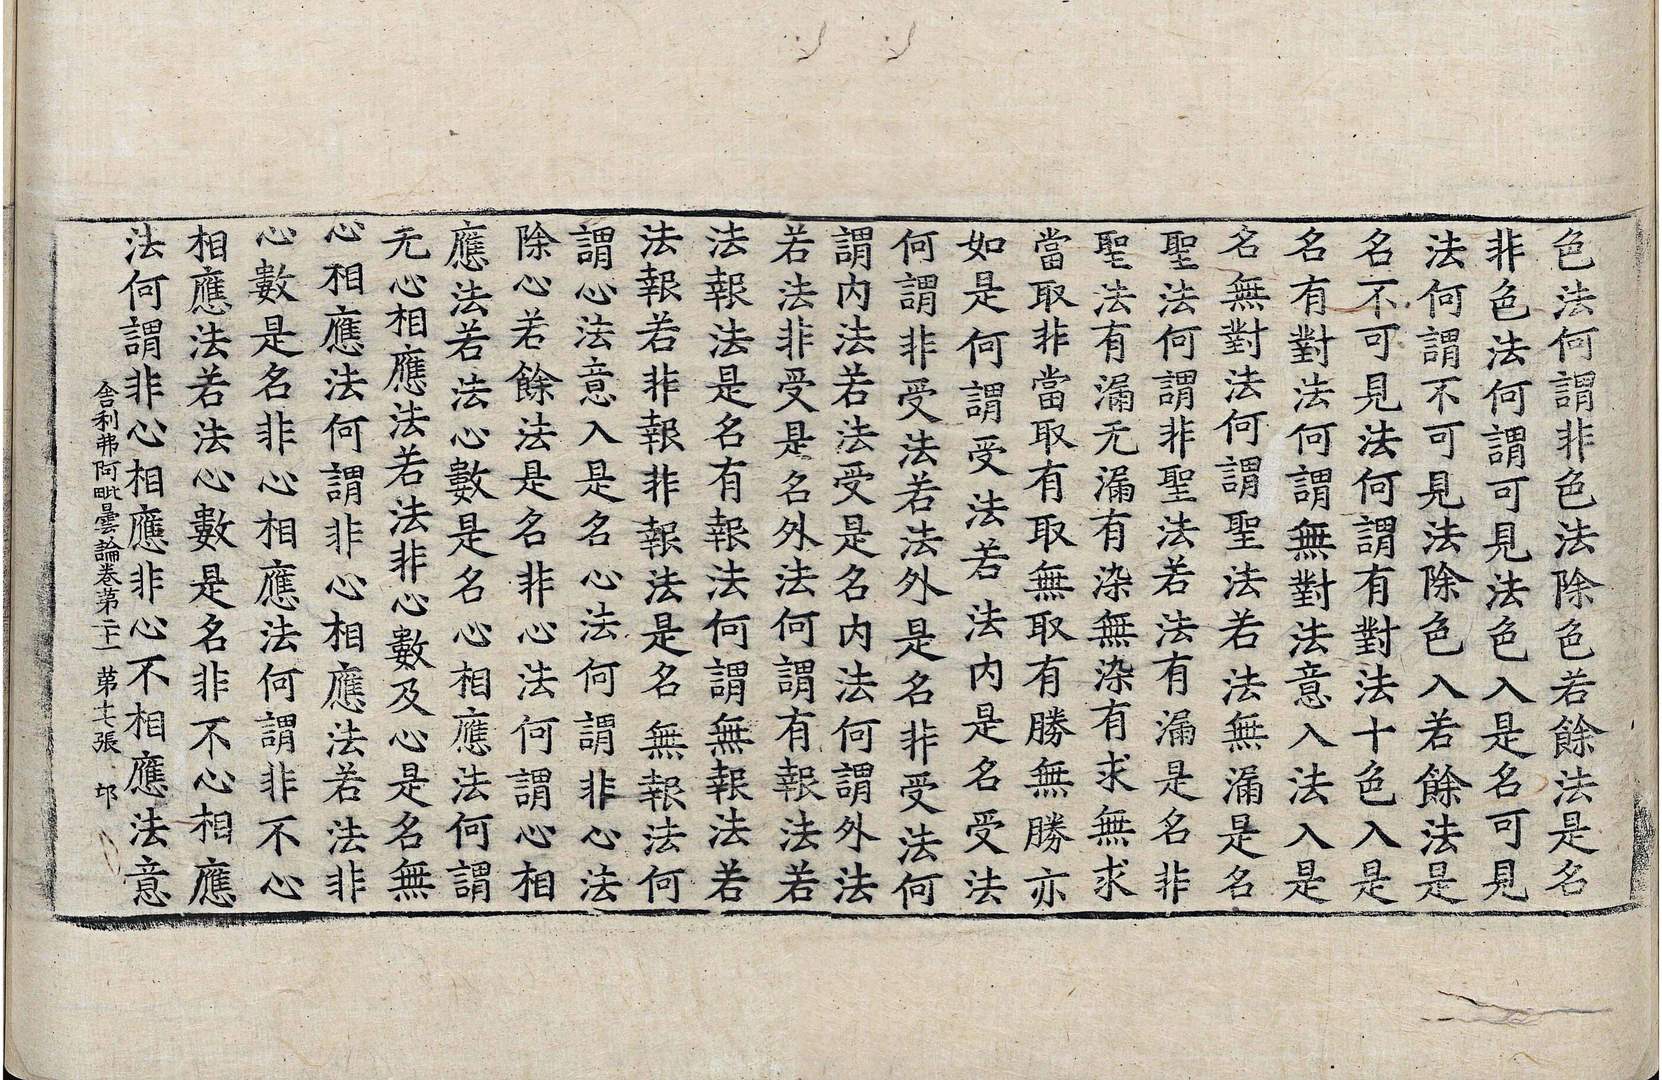 色法何謂非色法除色若餘法是名
非色法何謂可見法色入是名可見
法何謂不可見法除色入若餘法是
名不可見法何謂有對法十色入是
名有對法何謂無對法意入法入是
名無對法何謂聖法若法無漏是名
聖法何謂非聖法若法有漏是名非
聖法有漏无漏有染無染有求無求
當取非當取有取無取有勝無勝亦
如是何謂受法若法内是名受法
何謂非受法若法外是名非受法何
謂内法若法受是名内法何謂外法
若法非受是名外法何謂有報法若
法報法是名有報法何謂無報法若
法報若非報非報法是名無報法何
謂心法意入是名心法何謂非心法
除心若餘法是名非心法何謂心相
應法若法心數是名心相應法何謂
无心相應法若法非心數及心是名無
心相應法何謂非心相應法若法非
心數是名非心相應法何謂非不心
相應法若法心數是名非不心相應
法何謂非心相應非心不相應法意
舍利弗阿毗曇論卷苐二十一 苐十七張 邙